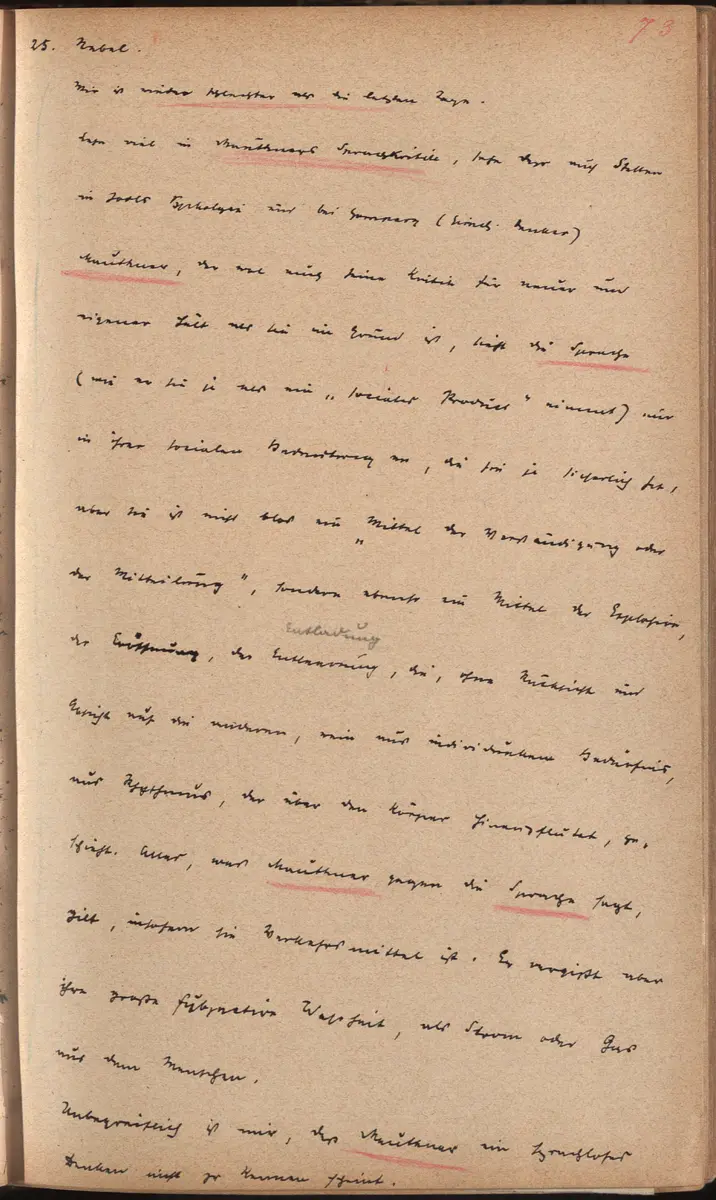 73
25. Nebel.
Mir ist wieder schlechter als die letzten Tage.
Lese viel in Mauthners Sprachkritik, lese dazu auch Stellen
in Jodls Psychologie und bei Gomperz (Griech. Denker)
Mauthner, der wol auch seine Kritik für neuer und
eigener hält als sie im Grund ist, sieht die Sprache
(wie er sie ja als ein „sociales Product" nimmt) nur
in ihrer socialen Bedeutung an, die sie ja sicherlich hat,
aber sie ist nicht blos ein „Mittel der Verständigung oder
der Mitteilung", sondern ebenso ein Mittel der Explosion,
Entladung
der Eröffnung, der Entleerung, die, ohne Rücksicht und
Absicht auf die anderen, rein aus individuellem Bedürfnis,
aus Rhythmus, der über den Körper hinausflutet, ge-
schieht. Alles, was Mauthner gegen die Sprache sagt,
gilt, insofern sie Verkehrsmittel ist. Er vergißt aber
ihre große Wahrheit, als Strom oder Gas
aus dem Menschen.
Unbegreiflich ist mir, das Mauthner ein sprachloses
Denken nicht zu kennen scheint.